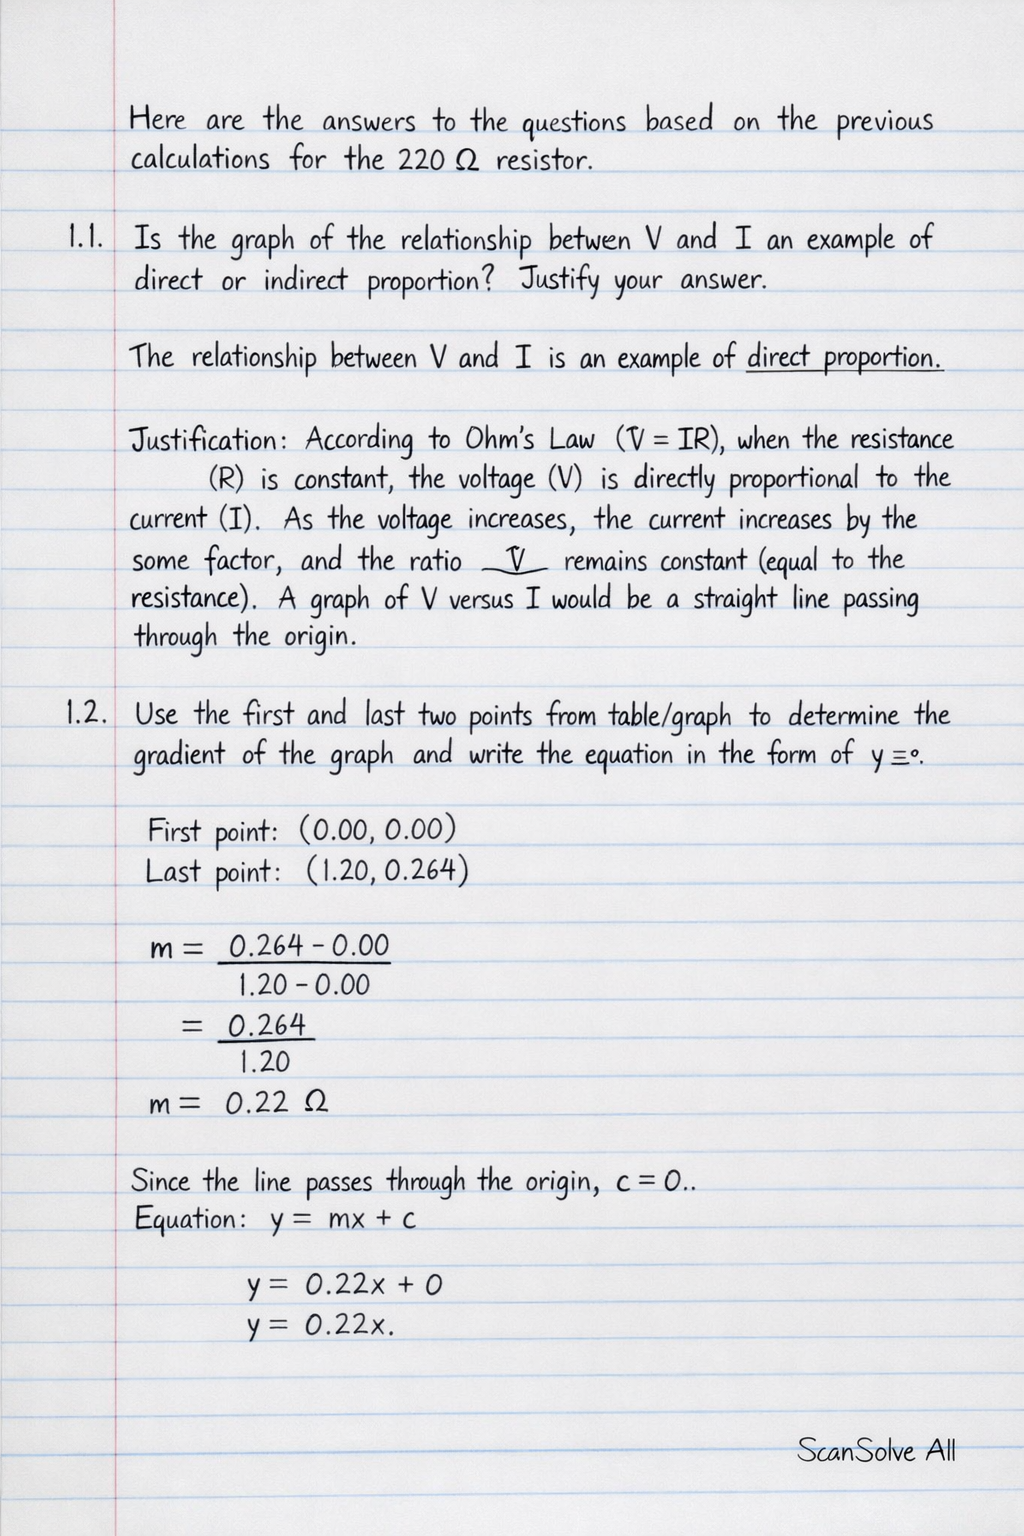 Here are the answers to the questions based on the previous
calculations for the 220 Ω resistor.
1.1. Is the graph of the relationship betwen V and I an example of
direct or indirect proportion? Justify your answer.
The relationship between V and I is an example of direct proportion.
Justification: According to Ohm's Law (V = IR), when the resistance
(R) is constant, the voltage (V) is directly proportional to the
current (I). As the voltage increases, the current increases by the
some factor, and the ratio V remains constant (equal to the
resistance). A graph of V versus I would be a straight line passing
through the origin.
1.2. Use the first and last two points from table/graph to determine the
gradient of the graph and write the equation in the form of y =
First point: (0.00, 0.00)
Last point: (1.20, 0.264)
m = 0.264 - 0.00
1.20 - 0.00
= 0.264
1.20
m = 0.22 Ω
Since the line passes through the origin, c = 0..
Equation: y = mx + c
y = 0.22x + 0
y = 0.22x.
ScanSolve All